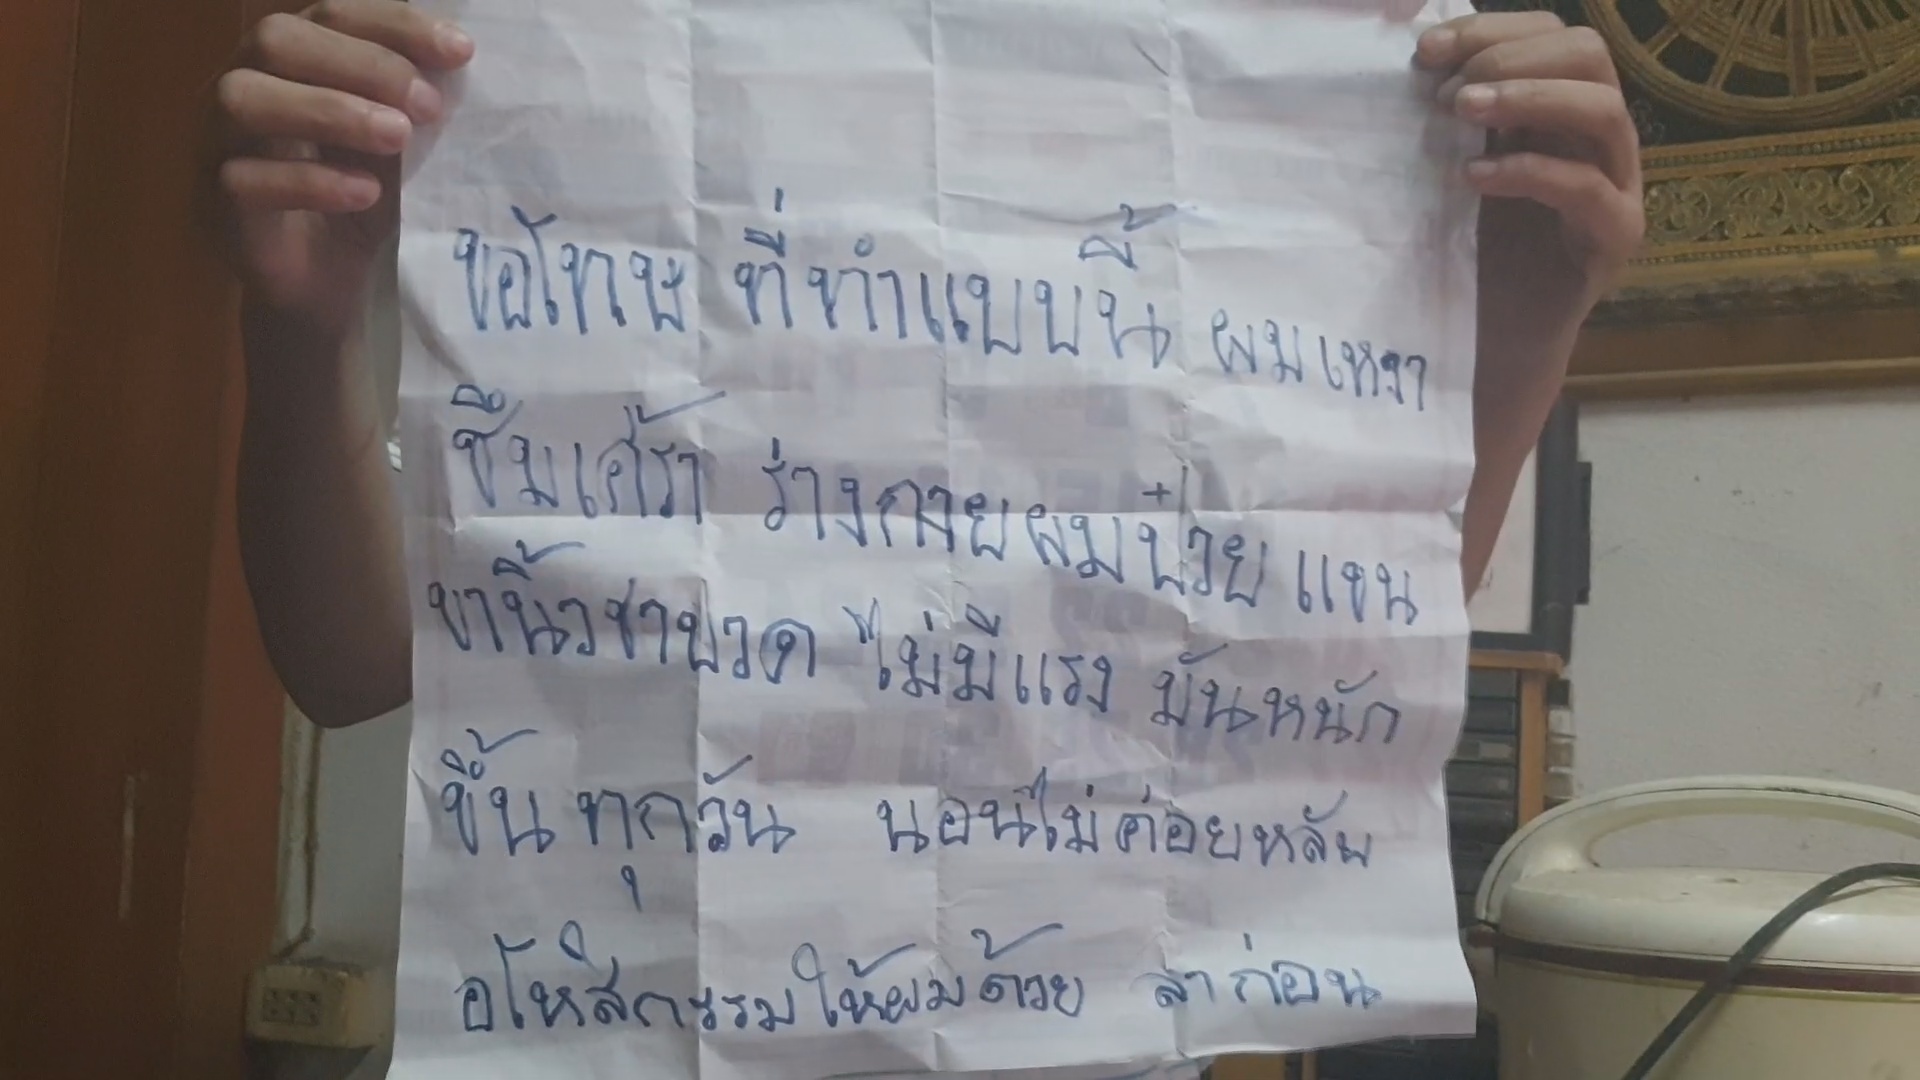 ขอโทษ ที่ทำแบบนี้ ผมเหงา
ซึมเศร้า ร่างกายผมป่วย แขน
ขานิ้วชาปวด ไม่มีแรง มันหนัก
ขึ้นทุกวัน นอนไม่ค่อยหลับ
อโหสิกรรมให้ผมด้วย ลาก่อน